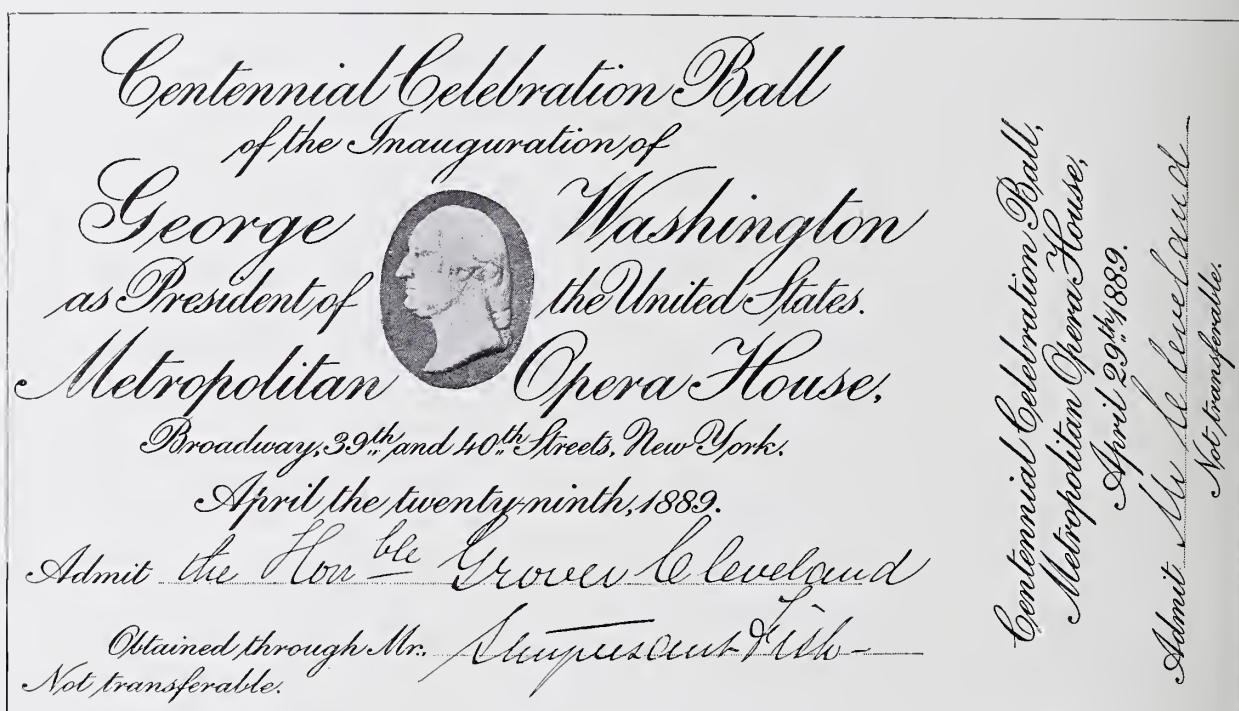 Centennial Celebration Ball
of the Inauguration of
George Washington
as President of the United States.
Metropolitan Opera House,
Broadway, 39th and 40th Streets, New York.
April the twenty-ninth, 1889.
Admit the Honble Grover Cleveland
Obtained through Mr. Stuyvesant Fish
Not transferable.
Centennial Celebration Ball,
Metropolitan Opera House,
April 29th 1889.
Admit Mr Cleveland
Not transferable.